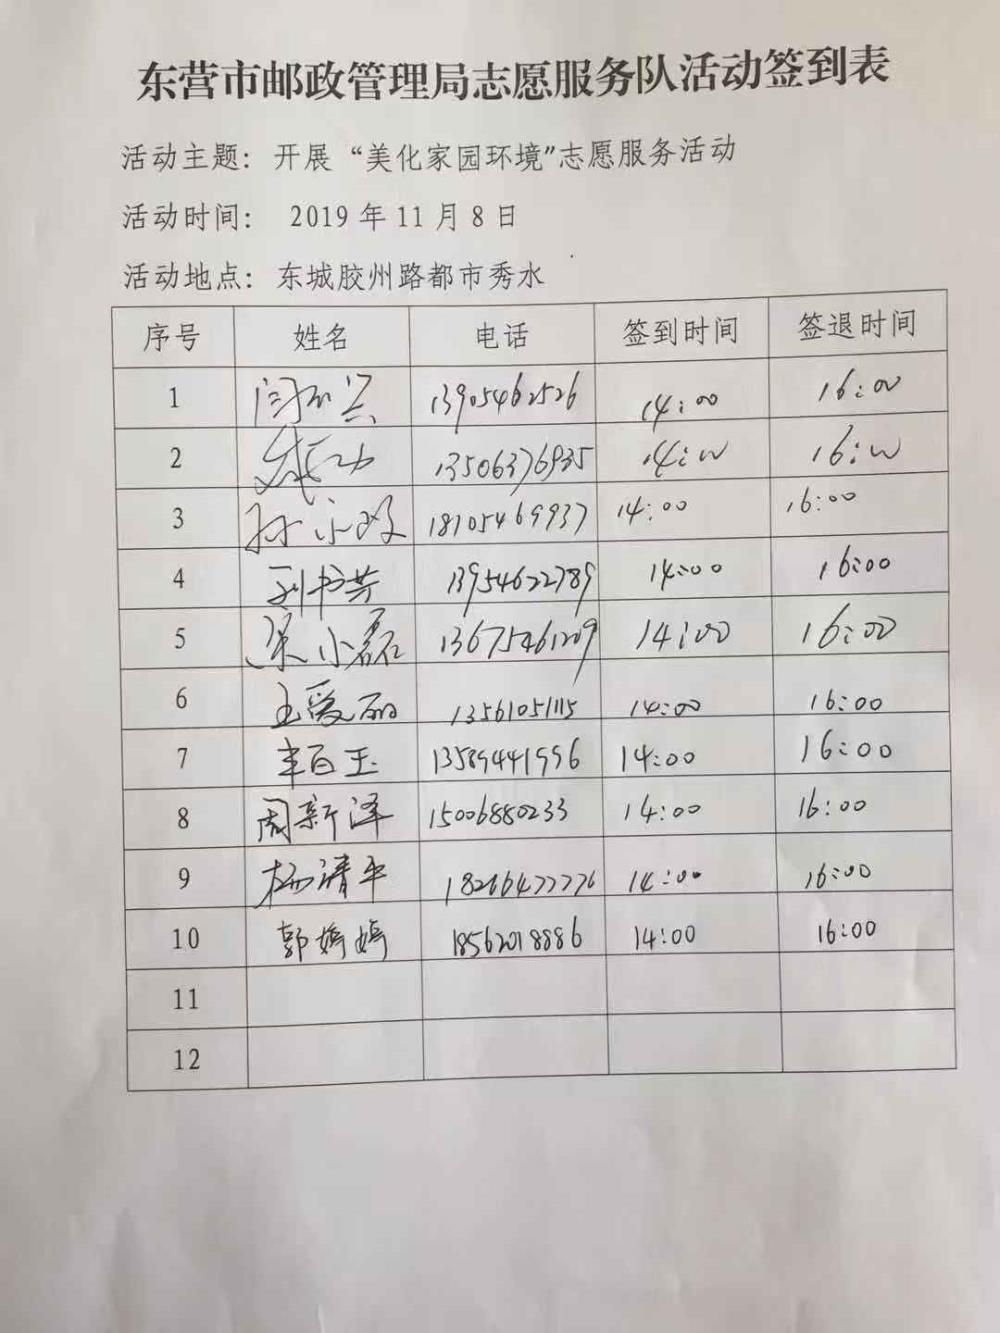 东营市邮政管理局志愿服务队活动签到表
活动主题：开展“美化家园环境”志愿服务活动
活动时间： 2019年11月8日
活动地点：东城胶州路都市秀水
序号 姓名 电话 签到时间 签退时间
1 13905462526 14:00 16:00
2 13506376935 14:00 16:00
3 18105469937 14:00 16:00
4 刘书芳 13954622789 14:00 16:00
5 梁小磊 13675461209 14:00 16:00
6 王爱丽 13561051115 14:00 16:00
7 丰百玉 13589441996 14:00 16:00
8 周新泽 15006880233 14:00 16:00
9 杨清平 18266477776 14:00 16:00
10 郭嫣嫣 18562018886 14:00 16:00
11
12